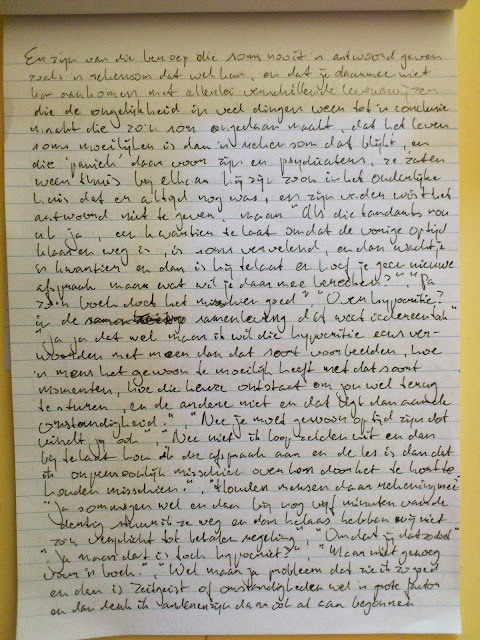 En zijn van die beroep die soms nooit 'n antwoord geven
zoals 'n rekensom dat wel kan, en dat je daarmee niet
kan aankomen met allerlei verschillende levenswijzen
die de ongelijkheid in veel dingen weer tot 'n conclusie
macht die zo'n som ongedaan maakt, dat het leven
soms moeilijker is dan 'n rekensom dat blijkt, en
die 'paniek' daar voor zijn en psychiaters, ze zaten
weer thuis bij elkaar hij zijn zoon in het ouderlijke
huis dat er altijd nog was, en zijn vader wist het
antwoord niet te geven, maar "Als die tandarts nou
uh ja, een kwartier te laat omdat de vorige op tijd
klaar en weg is, is soms vervelend, en dan wacht je
'n kwartier en dan is hij te laat en hoef je geen nieuwe
afspraak maar wat wil je daarmee bereiken?" "Ja
zo'n boek doet het wel goed" "Over hypocrisie?
in de samenleving dat weet iedereen toch"
"Ja ja dat wel maar ik wil die hypocrisie eens ver-
woorden met meer dan dat soort voorbeelden, hoe
'n mens het gewoon te moeilijk heeft met dat soort
momenten, hoe die keuze ontstaat om jou wel terug
te sturen, en de andere niet en dat ligt dan aan de
omstandigheid." "Nee je moet gewoon op tijd zijn dat
vindt jij ook" "Nee niet ik loop zelden uit en dan
bij te laat kom ik die afspraak aan en de les is dan dat
ik onpersoonlijk misschien over kom door het te kort te
houden misschien." "Houden mensen daar rekening mee"
"Ja sommigen wel en dan bij nog vijf minuten van de
dertig stuur ik ze weg en dan helaas hebben wij niet
zo'n verplicht tot betalen regeling" "Omdat jij dat zo doet"
"Ja maar dat is toch hypocriet?" "Maar niet genoeg
voor 'n boek." "Wel maar je probleem dat zie ik zo goed
en dan is zeitgeist of omstandigheden wel 'n grote factor
en dan denk ik daar ook al aan begonnen